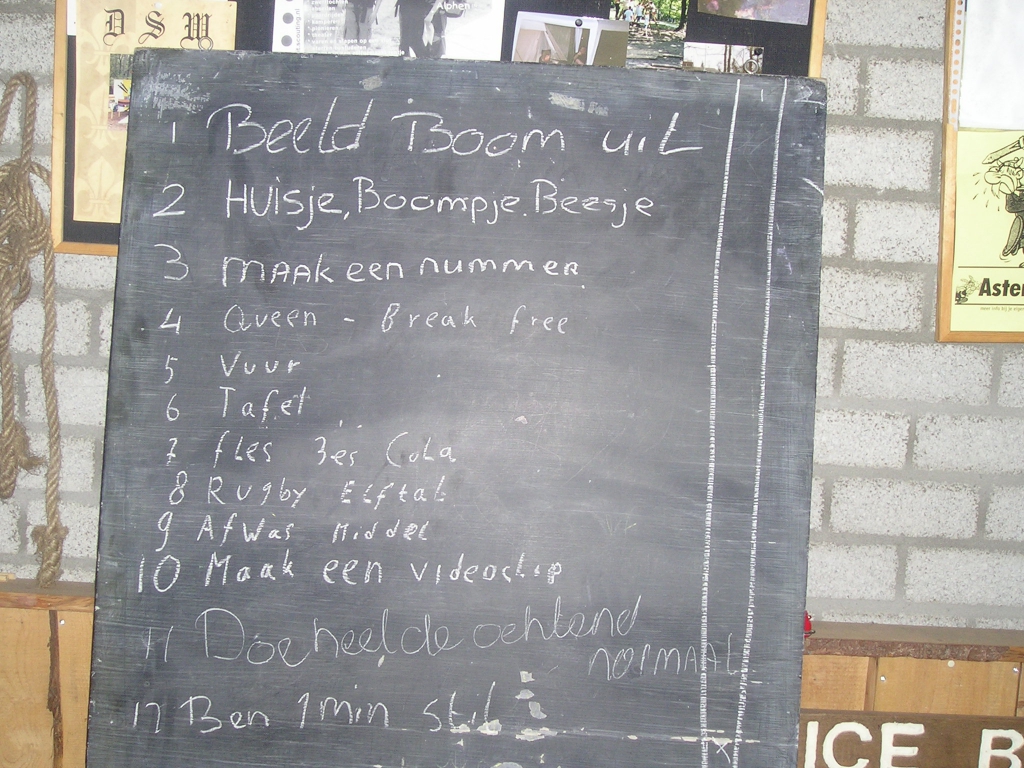 DSW
Alphen
1 Beeld Boom uit
2 Huisje, Boompje. Beesje
3 maak een nummer
4 Queen - Break free
5 Vuur
6 Tafel
7 fles 3es Cola
8 Rugby Elftal
9 Afwas Middel
10 Maak een videoclip
11 Doe heel de ochtend
normaal
12 Ben 1 min stil
Aster
ICE B